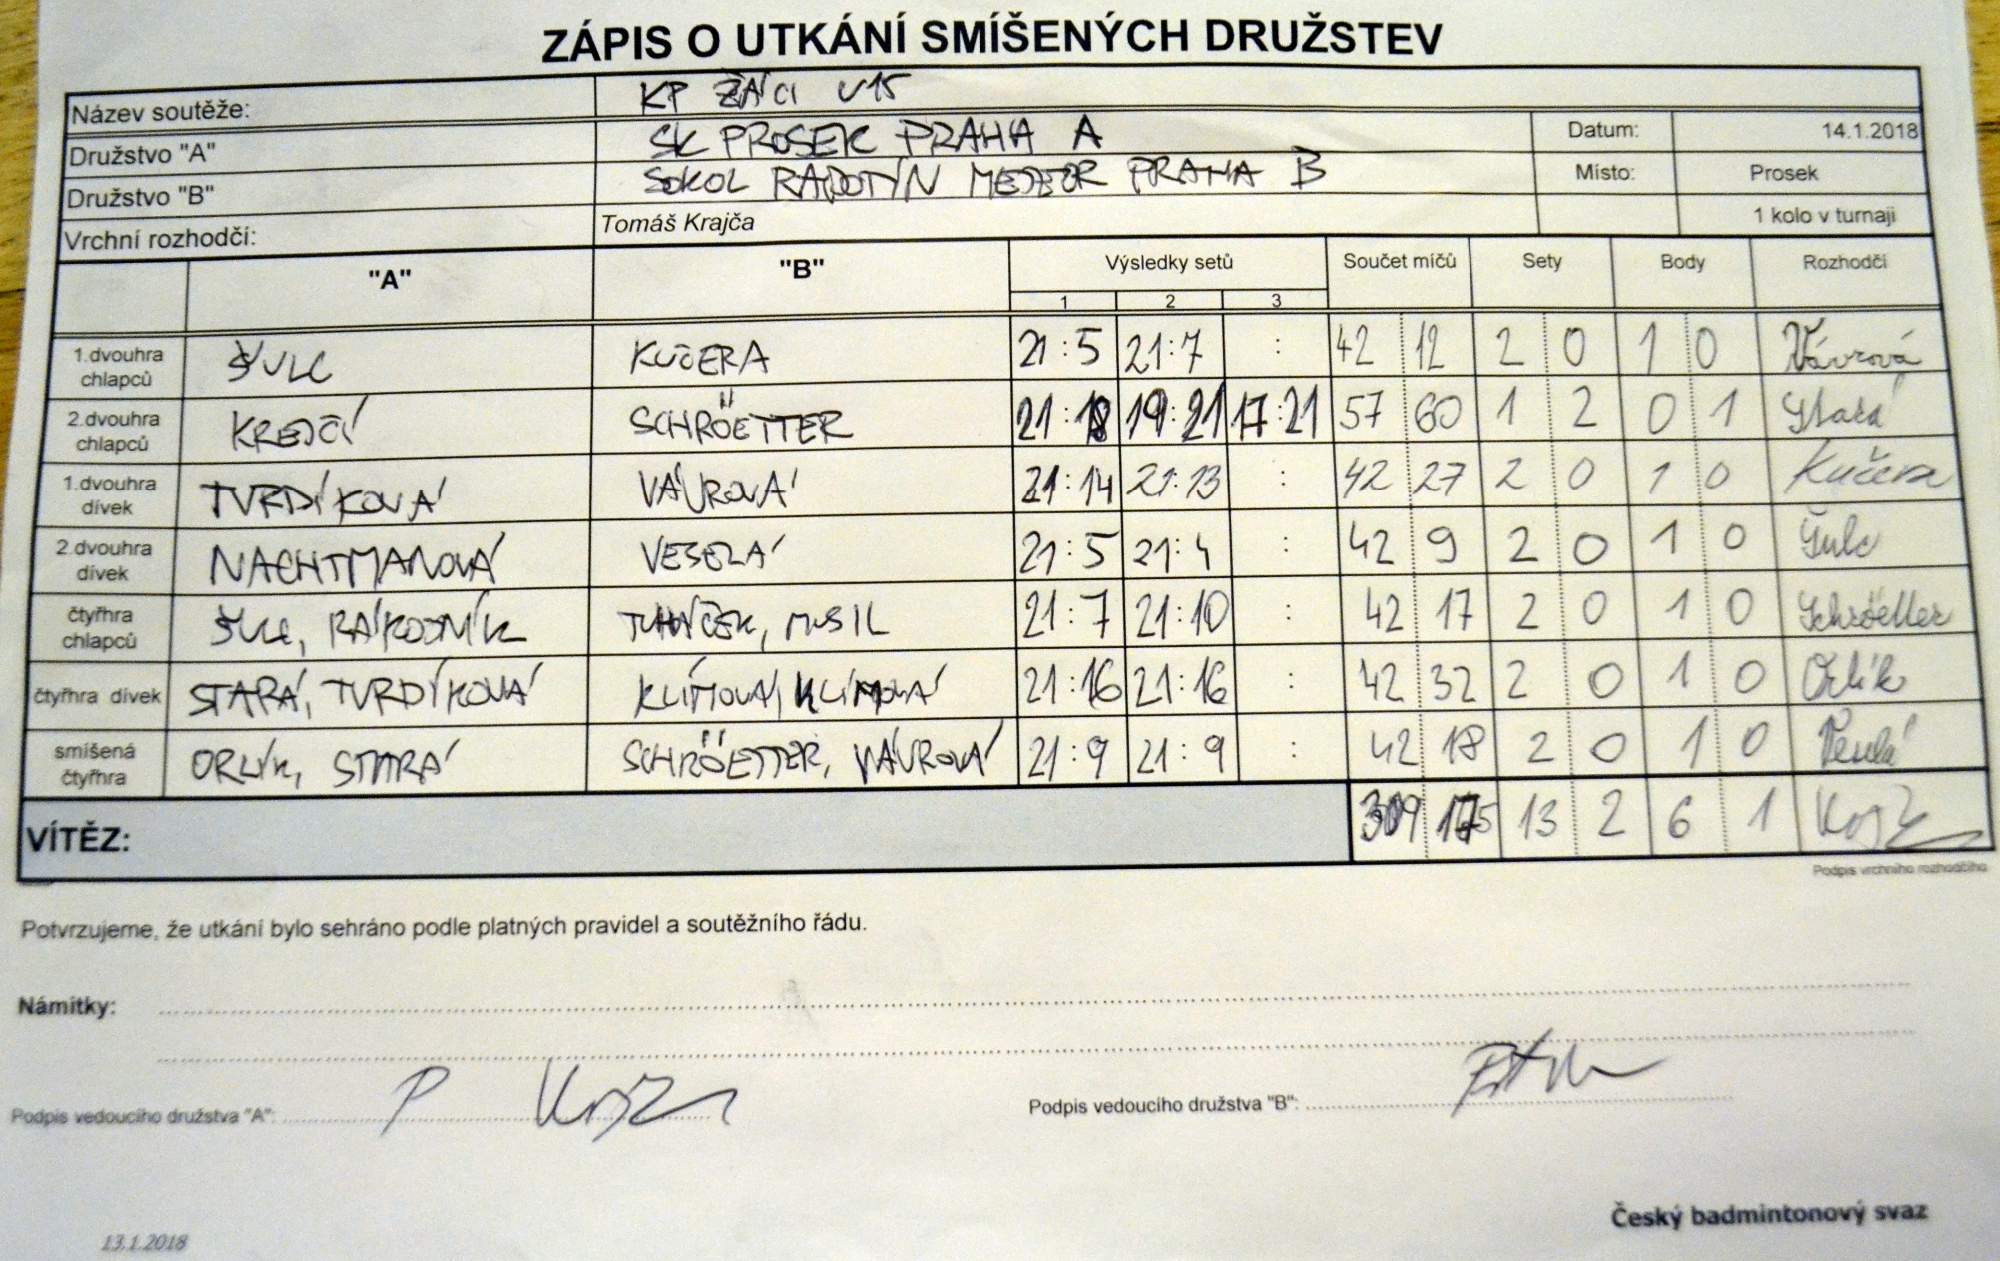 ZÁPIS O UTKÁNÍ SMÍŠENÝCH DRUŽSTEV
Název soutěže: KP ŽÁCI U15
Družstvo "A" SK PROSEK PRAHA A Datum: 14.1.2018
Družstvo "B" SOKOL RADOTÍN METEOR PRAHA B Místo: Prosek
Vrchní rozhodčí: Tomáš Krajča 1 kolo v turnaji
"A" "B" Výsledky setů Součet míčů Sety Body Rozhodčí
1 2 3
1.dvouhra chlapců ŠULC KUČERA 21:5 21:7 : 42 12 2 0 1 0 Vávrová
2.dvouhra chlapců KREJČÍ SCHRÖETTER 21:18 19:21 17:21 57 60 1 2 0 1 Stará
1.dvouhra dívek TVRDÍKOVÁ VÁVROVÁ 21:14 21:13 : 42 27 2 0 1 0 Kučera
2.dvouhra dívek NACHTMANOVÁ VESELÁ 21:5 21:4 : 42 9 2 0 1 0 Šulc
čtyřhra chlapců ŠULC, RÁKODNÍK MUSIL 21:7 21:10 : 42 17 2 0 1 0 Schröetter
čtyřhra dívek STARÁ, TVRDÍKOVÁ KLÍMOVÁ, KLÍMOVÁ 21:16 21:16 : 42 32 2 0 1 0 Orlík
smíšená čtyřhra ORLÍK, STARÁ SCHRÖETTER, VÁVROVÁ 21:9 21:9 : 42 18 2 0 1 0 Veselá
VÍTĚZ: 309 175 13 2 6 1
Podpis vrchního rozhodčího
Potvrzujeme, že utkání bylo sehráno podle platných pravidel a soutěžního řádu.
Námitky:
Podpis vedoucího družstva "A": Podpis vedoucího družstva "B":
Český badmintonový svaz
13.1.2018